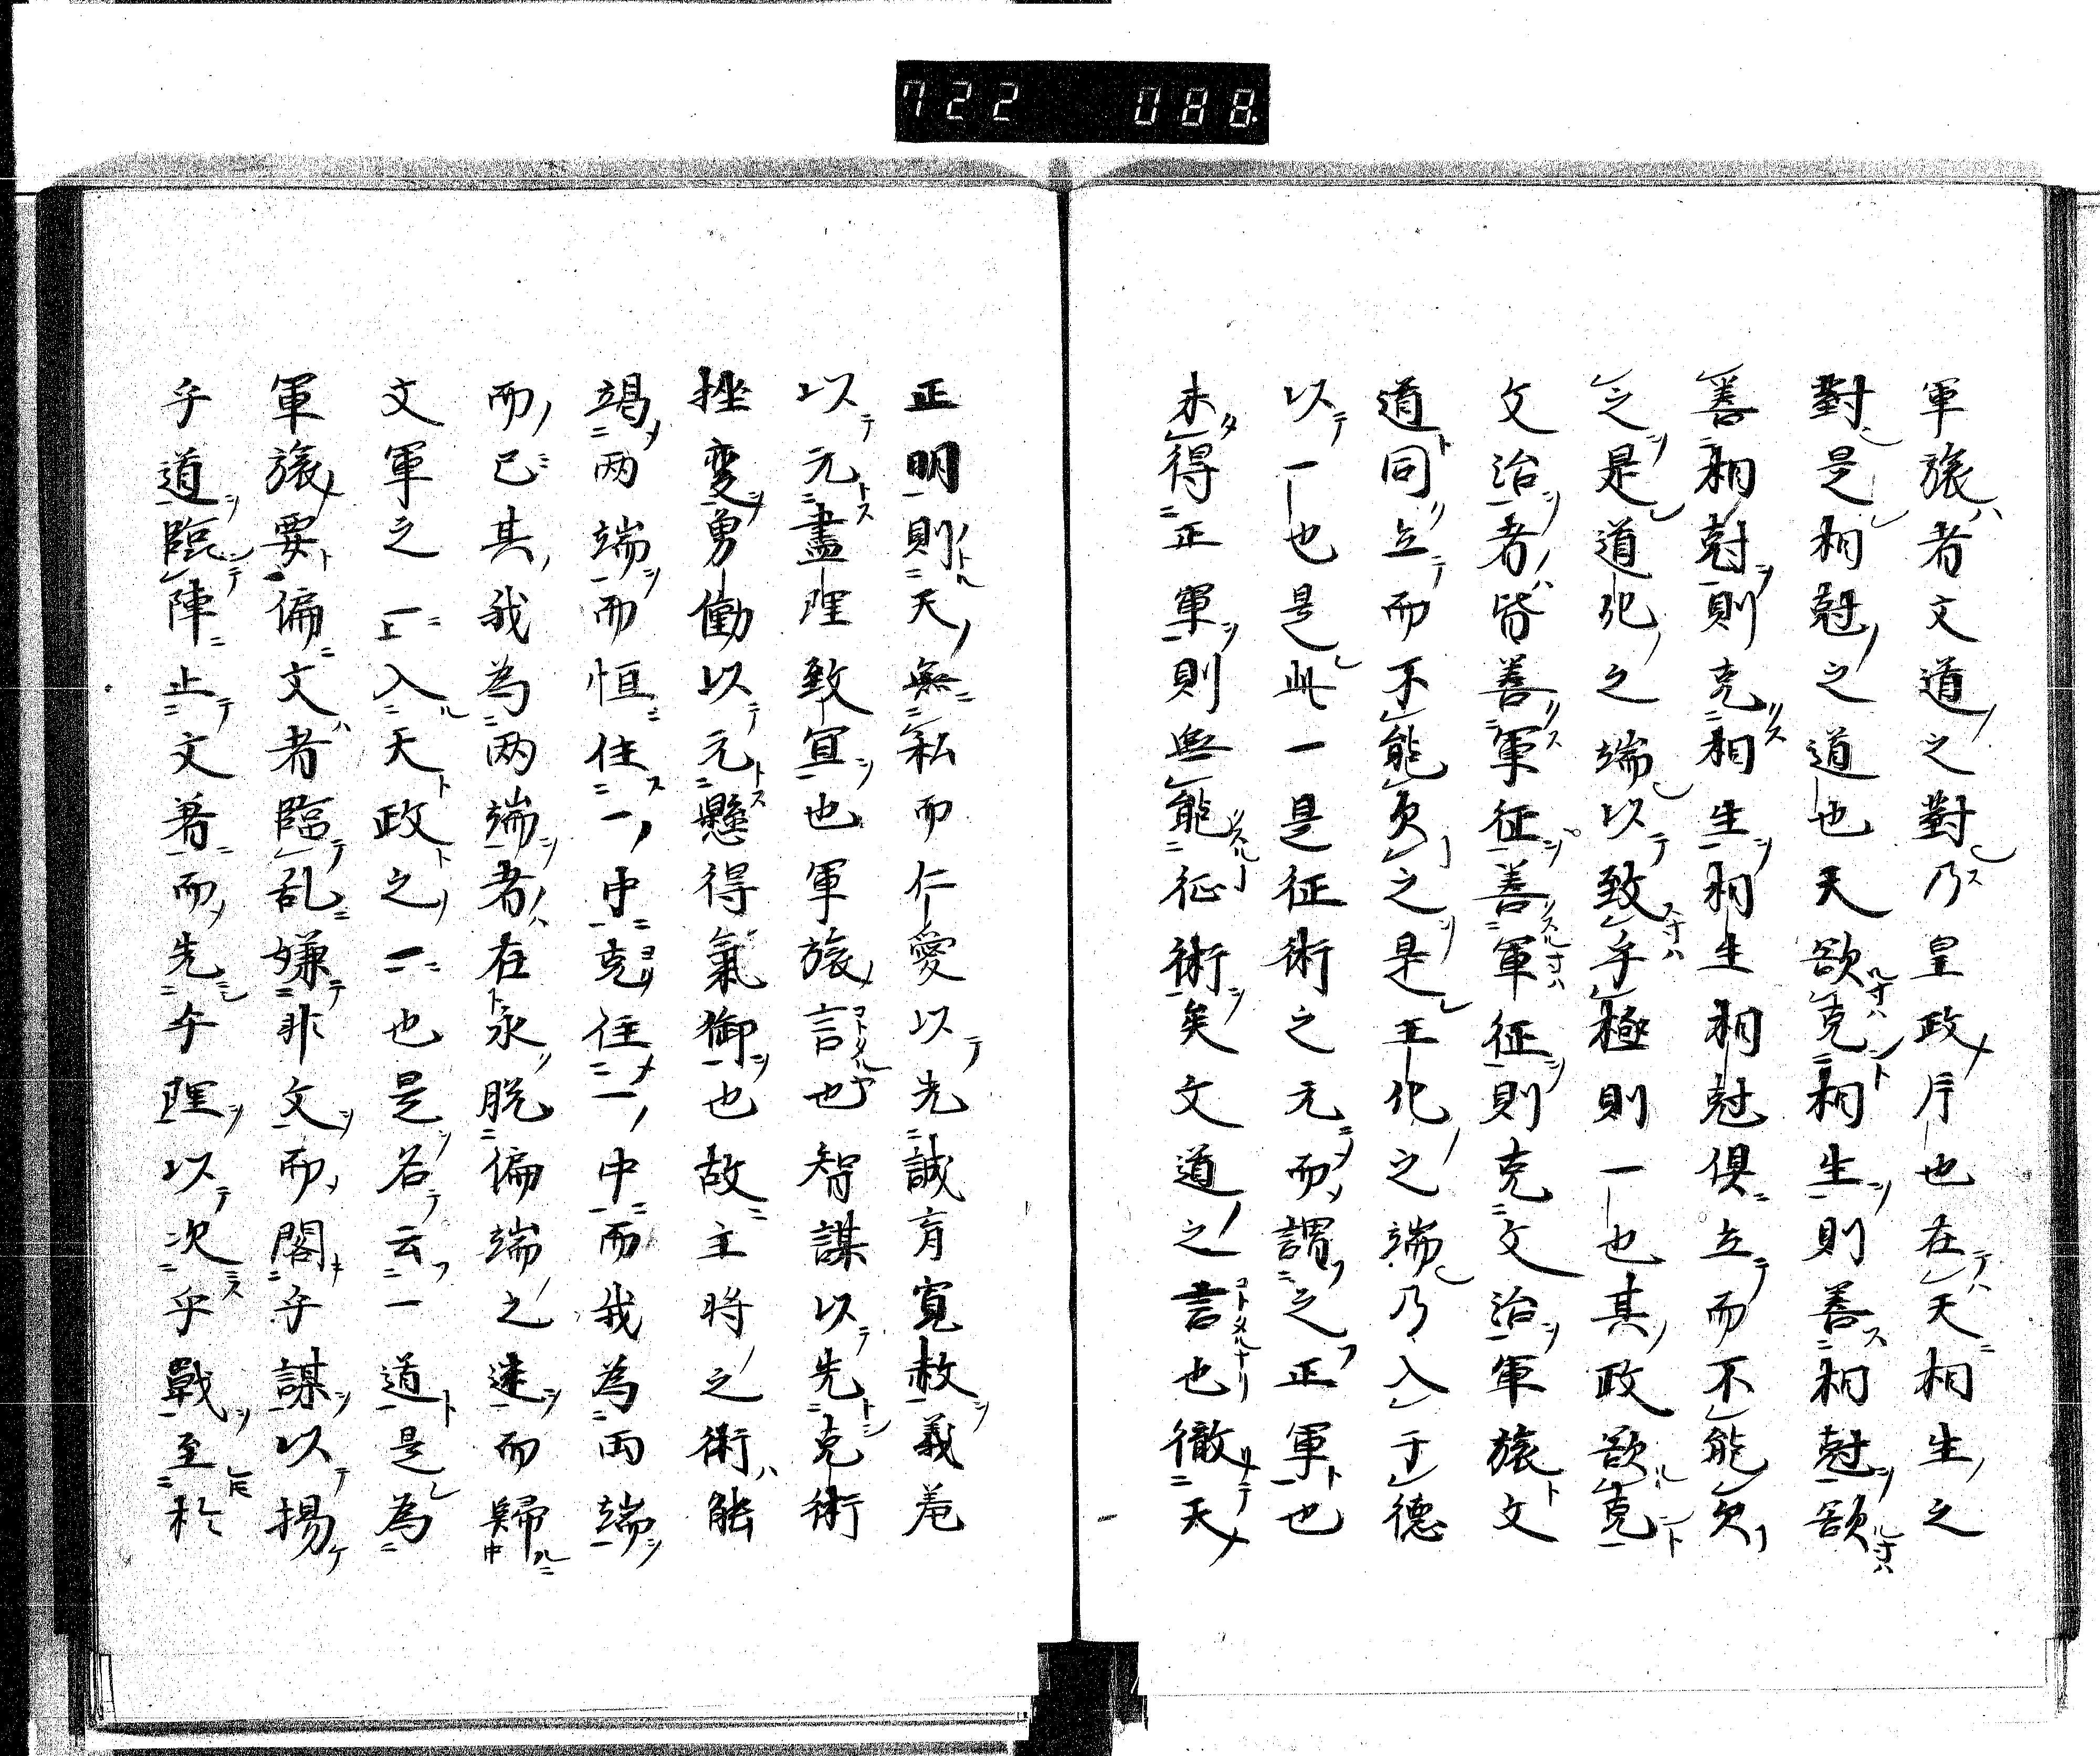 722 088
軍旅者文道之對乃皇政片也在天相生之
對是相尅之道也天欲克相生則善相尅欲
善相尅則克相生相生相尅倶立而不能欠
之是道化之端以致乎極則一也其政欲克
文治者皆善軍征善軍征則克文治軍旅文
道同立而不能欠之是王化之端乃入于德
以一也是此一是征術之元而謂之正軍也
未得正軍則無能征術矣文道之言也徹天
正明則天無私而仁愛以先誠育寛赦義
以元盡理致宜也軍旅言也智謀以先克術
挫変勇勤以元懸得氣御也故主將之術能
竭两端而恒住一中克住一中而我為两端
而已其我為两端者在永脱偏端之迷而歸
文軍之一入天政之一也是名云一道是為
軍旅要偏文者臨乱嫌非文而閣乎謀以揚
乎道臨陣止文著而先乎理以次乎戰至於